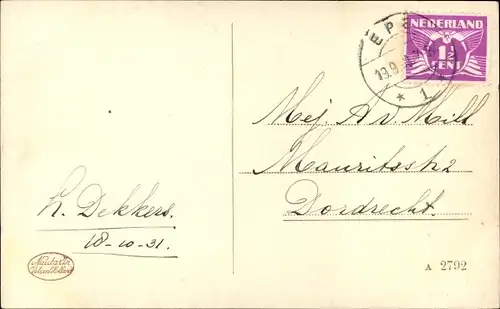 NEDERLAND
1½
CENT
19.9
1
Mej. A v. Mill
Mauritsstr 2
Dordrecht.
h. Dekkers.
18-10-31.
A 2792